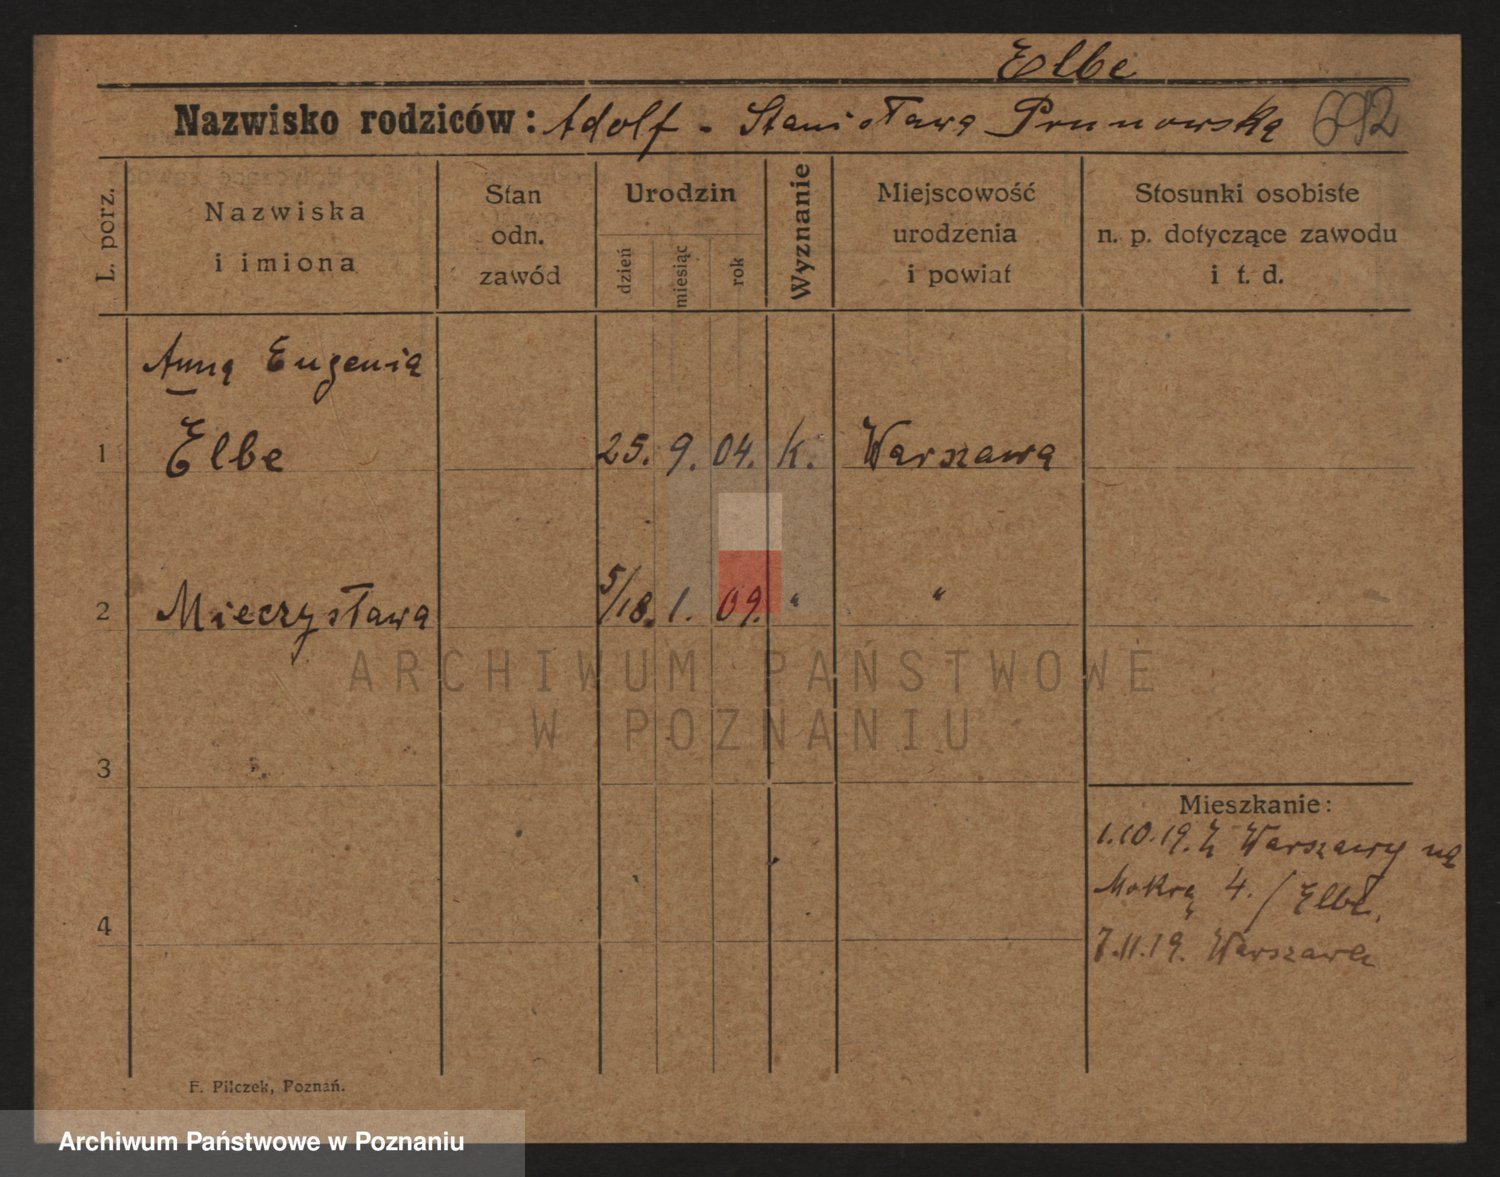 Elbe
Nazwisko rodziców: Adolf - Stanisława Prunowska 692
L. porz.
Nazwiska
i imiona
Stan
odn.
zawód
Urodzin
dzień
miesiąc
rok
Wyznanie
Miejscowość
urodzenia
i powiat
Stosunki osobiste
n. p. dotyczące zawodu
i t. d.
Anna Eugenia
1 Elbe 25. 9. 04. k. Warszawa
2 Mieczysława 5/18. 1. 09. " "
ARCHIWUM PAŃSTWOWE
W POZNANIU
3
Mieszkanie:
1.10.19. Z Warszawy na
Mokrą 4. / Elbe.
4
7.11.19. Warszawa
F. Pilczek, Poznań.
Archiwum Państwowe w Poznaniu